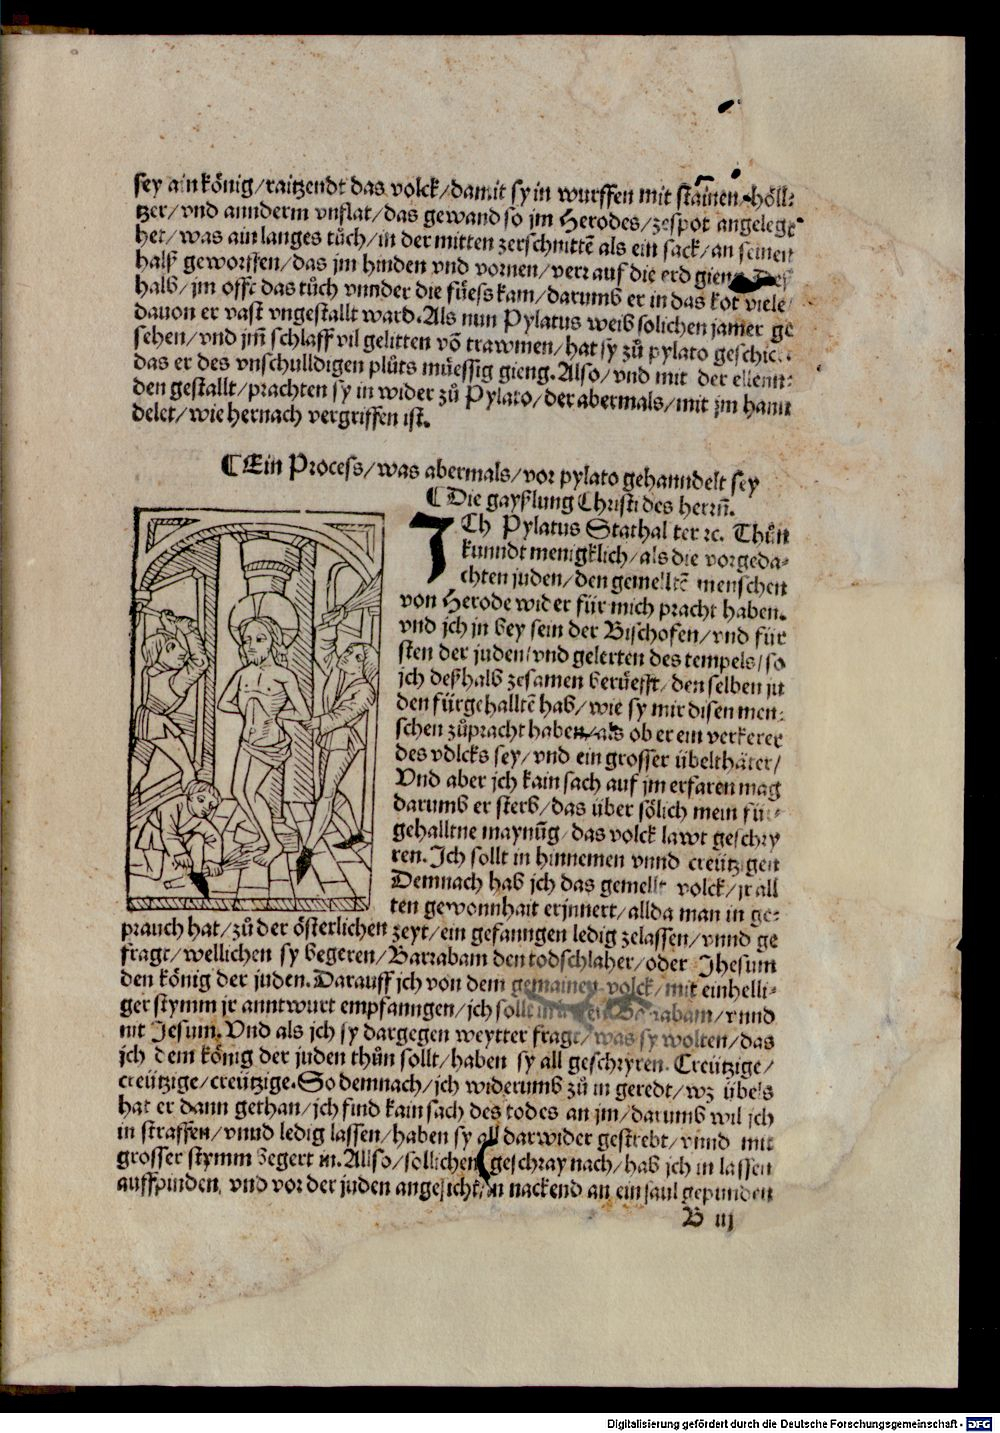 sey ain könig/raitzendt das volck/damit sy in wurffen mit stainen/höll⸗
tzer/vnd annderm vnflat/das gewand so jm Herodes/zespot angelegt
het/was ain langes tůch/in der mitten zerschnittē als ein sack/an seinen
halß geworffen/das jm hinden vnd vornen/verr auf die erd gieng
halb/jm offt das tůch vnnder die füess kam/darumb er in das kot viele/
dauon er vast vngestallt ward.Als nun Pylatus weib solichen jamer ge
sehen/vnd jm̄ schlaff vil gelitten vō trawmen/hat sy zů pylato geschick
das er des vnschulldigen plůts müessig gieng.Also/vnd mit der ellenn⸗
den gestallt/prachten sy in wider zů Pylato/der abermals/mit jm hann
delet/wie hernach vergriffen ist.
¶Ein Process/was abermals/vor pylato gehanndelt sey
¶Die gayßlung Christi des herrn̄.
JCh Pylatus Stathalter ꝛc. Thůn
kunndt menigklich/als die vorgeda⸗
chten juden/den gemelltē menschen
von Herode wider für mich pracht haben.
vnd jch in bey sein der Bischofen/vnd für
sten der juden/vnd gelerten des tempels/so
jch deßhalb zesamen berüefft/den selben ju
den fürgehalltē hab/wie sy mir disen men⸗
schen zůpracht haben/als ob er ein verkerer
des volcks sey/vnd ein grosser übelthäter/
Vnd aber jch kain sach auf jm erfaren mag
darumb er sterb/das über sölich mein für⸗
gehalltne maynūg/das volck lawt geschry
ren.Ich sollt in hinnemen vnnd creützigen
Demnach hab jch das gemellt volck/jr all
ten gewonnhait erjnnert/allda man in ge⸗
prauch hat/zů der österlichen zeyt/ein gefanngen ledig zelassen/vnnd ge
fragt/wellichen sy begeren/Barrabam den todschlaher/oder Jhesum
den könig der juden.Darauff jch von dem gemainen volck/mit einhelli⸗
ger stymm jr anntwurt empfanngen/jch sollt in Barrabam/vnnd
nit Jesum.Vnd als jch sy dargegen weytter fragt/was sy wolten/das
jch dem könig der juden thůn sollt/haben sy all geschryren.Creützige/
creützige/creützige.So demnach/jch widerumb zů in geredt/wz übels
hat er dann gethan/jch find kain sach des todes an jm/darumb wil jch
in straffen/vnnd ledig lassen/haben sy all darwider gestrebt/vnnd mit
grosser stymm begert in.Allso/sollichen geschray nach/hab jch in lassen
auffpinden, vnd vor der juden angesicht/in nackend an ein saul gepunden
B iij
Digitalisierung gefördert durch die Deutsche Forschungsgemeinschaft - DFG